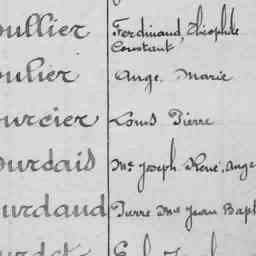 oullier Ferdinand, Théophile
Constant,
oulier Ange Marie
ourcier Louis Pierre
ourdais Mᵉ Joseph René, Ange
urdaud Pierre Mie Jean Bapt